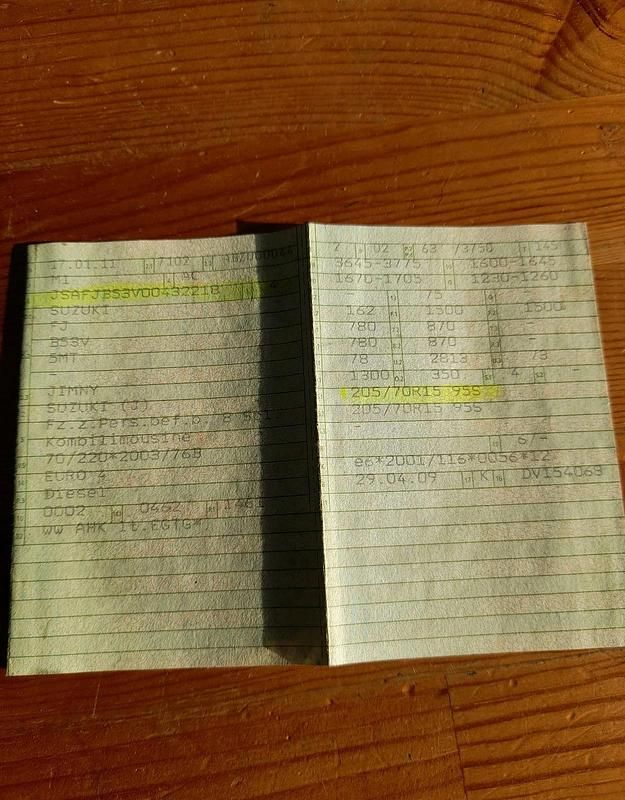 17.01.11 7102 ABZ000044
M1 AC
JSAFJB53V00432218 4
SUZUKI
FJ
B53V
5MT
-
JIMNY
SUZUKI (J)
Fz.z.Pers.bef.b. 8 Spl.
Kombilimousine
70/220*2003/76B
EURO 4
Diesel
0002 0462 1461
WW AHK lt.EGTG*
2 02 63 /3750 145
3645-3775 1600-1645
1670-1705 1230-1260
- 75 -
162 1500 1500
780 870 -
780 870 -
78 2813 73
1300 350 4
205/70R15 95S
205/70R15 95S
-
6/-
e6*2001/116*0056*12
29.04.09 K DV154069